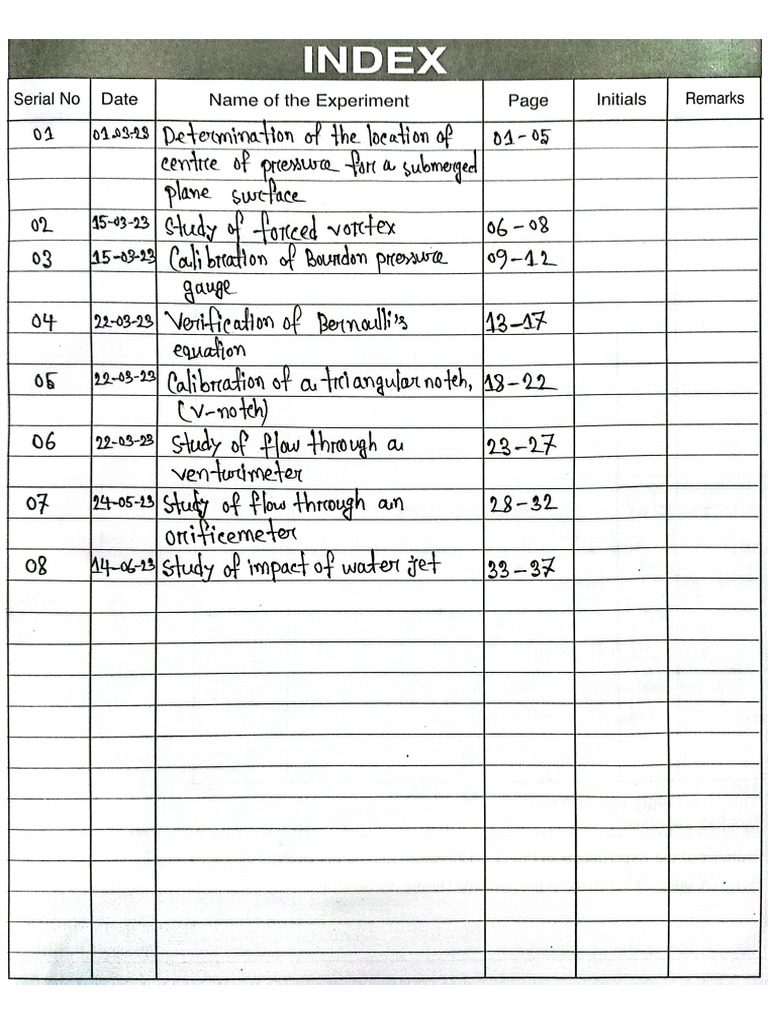 INDEX
Serial No Date Name of the Experiment Page Initials Remarks
01 01.03-23 Determination of the location of 01-05
centre of pressure for a submerged
plane surface
02 15-03-23 Study of forced vortex 06-08
03 15-03-23 Calibration of Bourdon pressure 09-12
gauge
04 22-03-23 Verification of Bernoulli's 13-17
equation
05 22-03-23 Calibration of a triangular notch, 18-22
(V-notch)
06 22-03-23 Study of flow through a 23-27
venturimeter
07 24-05-23 Study of flow through an 28-32
orificemeter
08 14-06-23 Study of impact of water jet 33-37